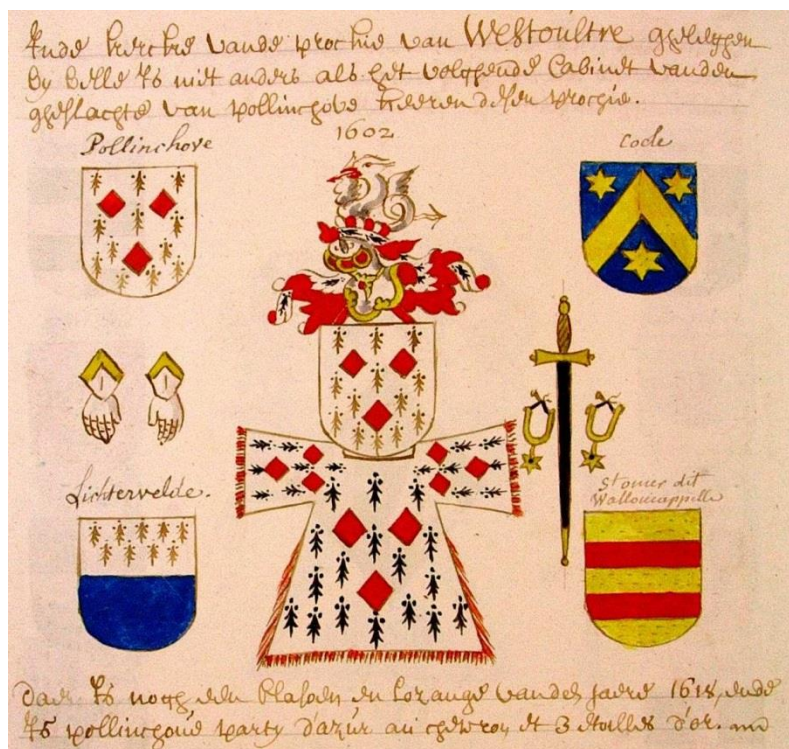 Inde kercke vande prochie van Westoultre gheleghen
by belle Is niet anders als het volghende Cabinet vanden
gheslachte van pollinchove heeren deser prochie.
1602
Pollinchove
Code
Lichtervelde.
st omer dit
Walloncappelle
daer Is nogh een blasoen en lozange vanden jaere 1618, ende
Is pollinchove party d'azur au chevron et 3 etoilles d'or.